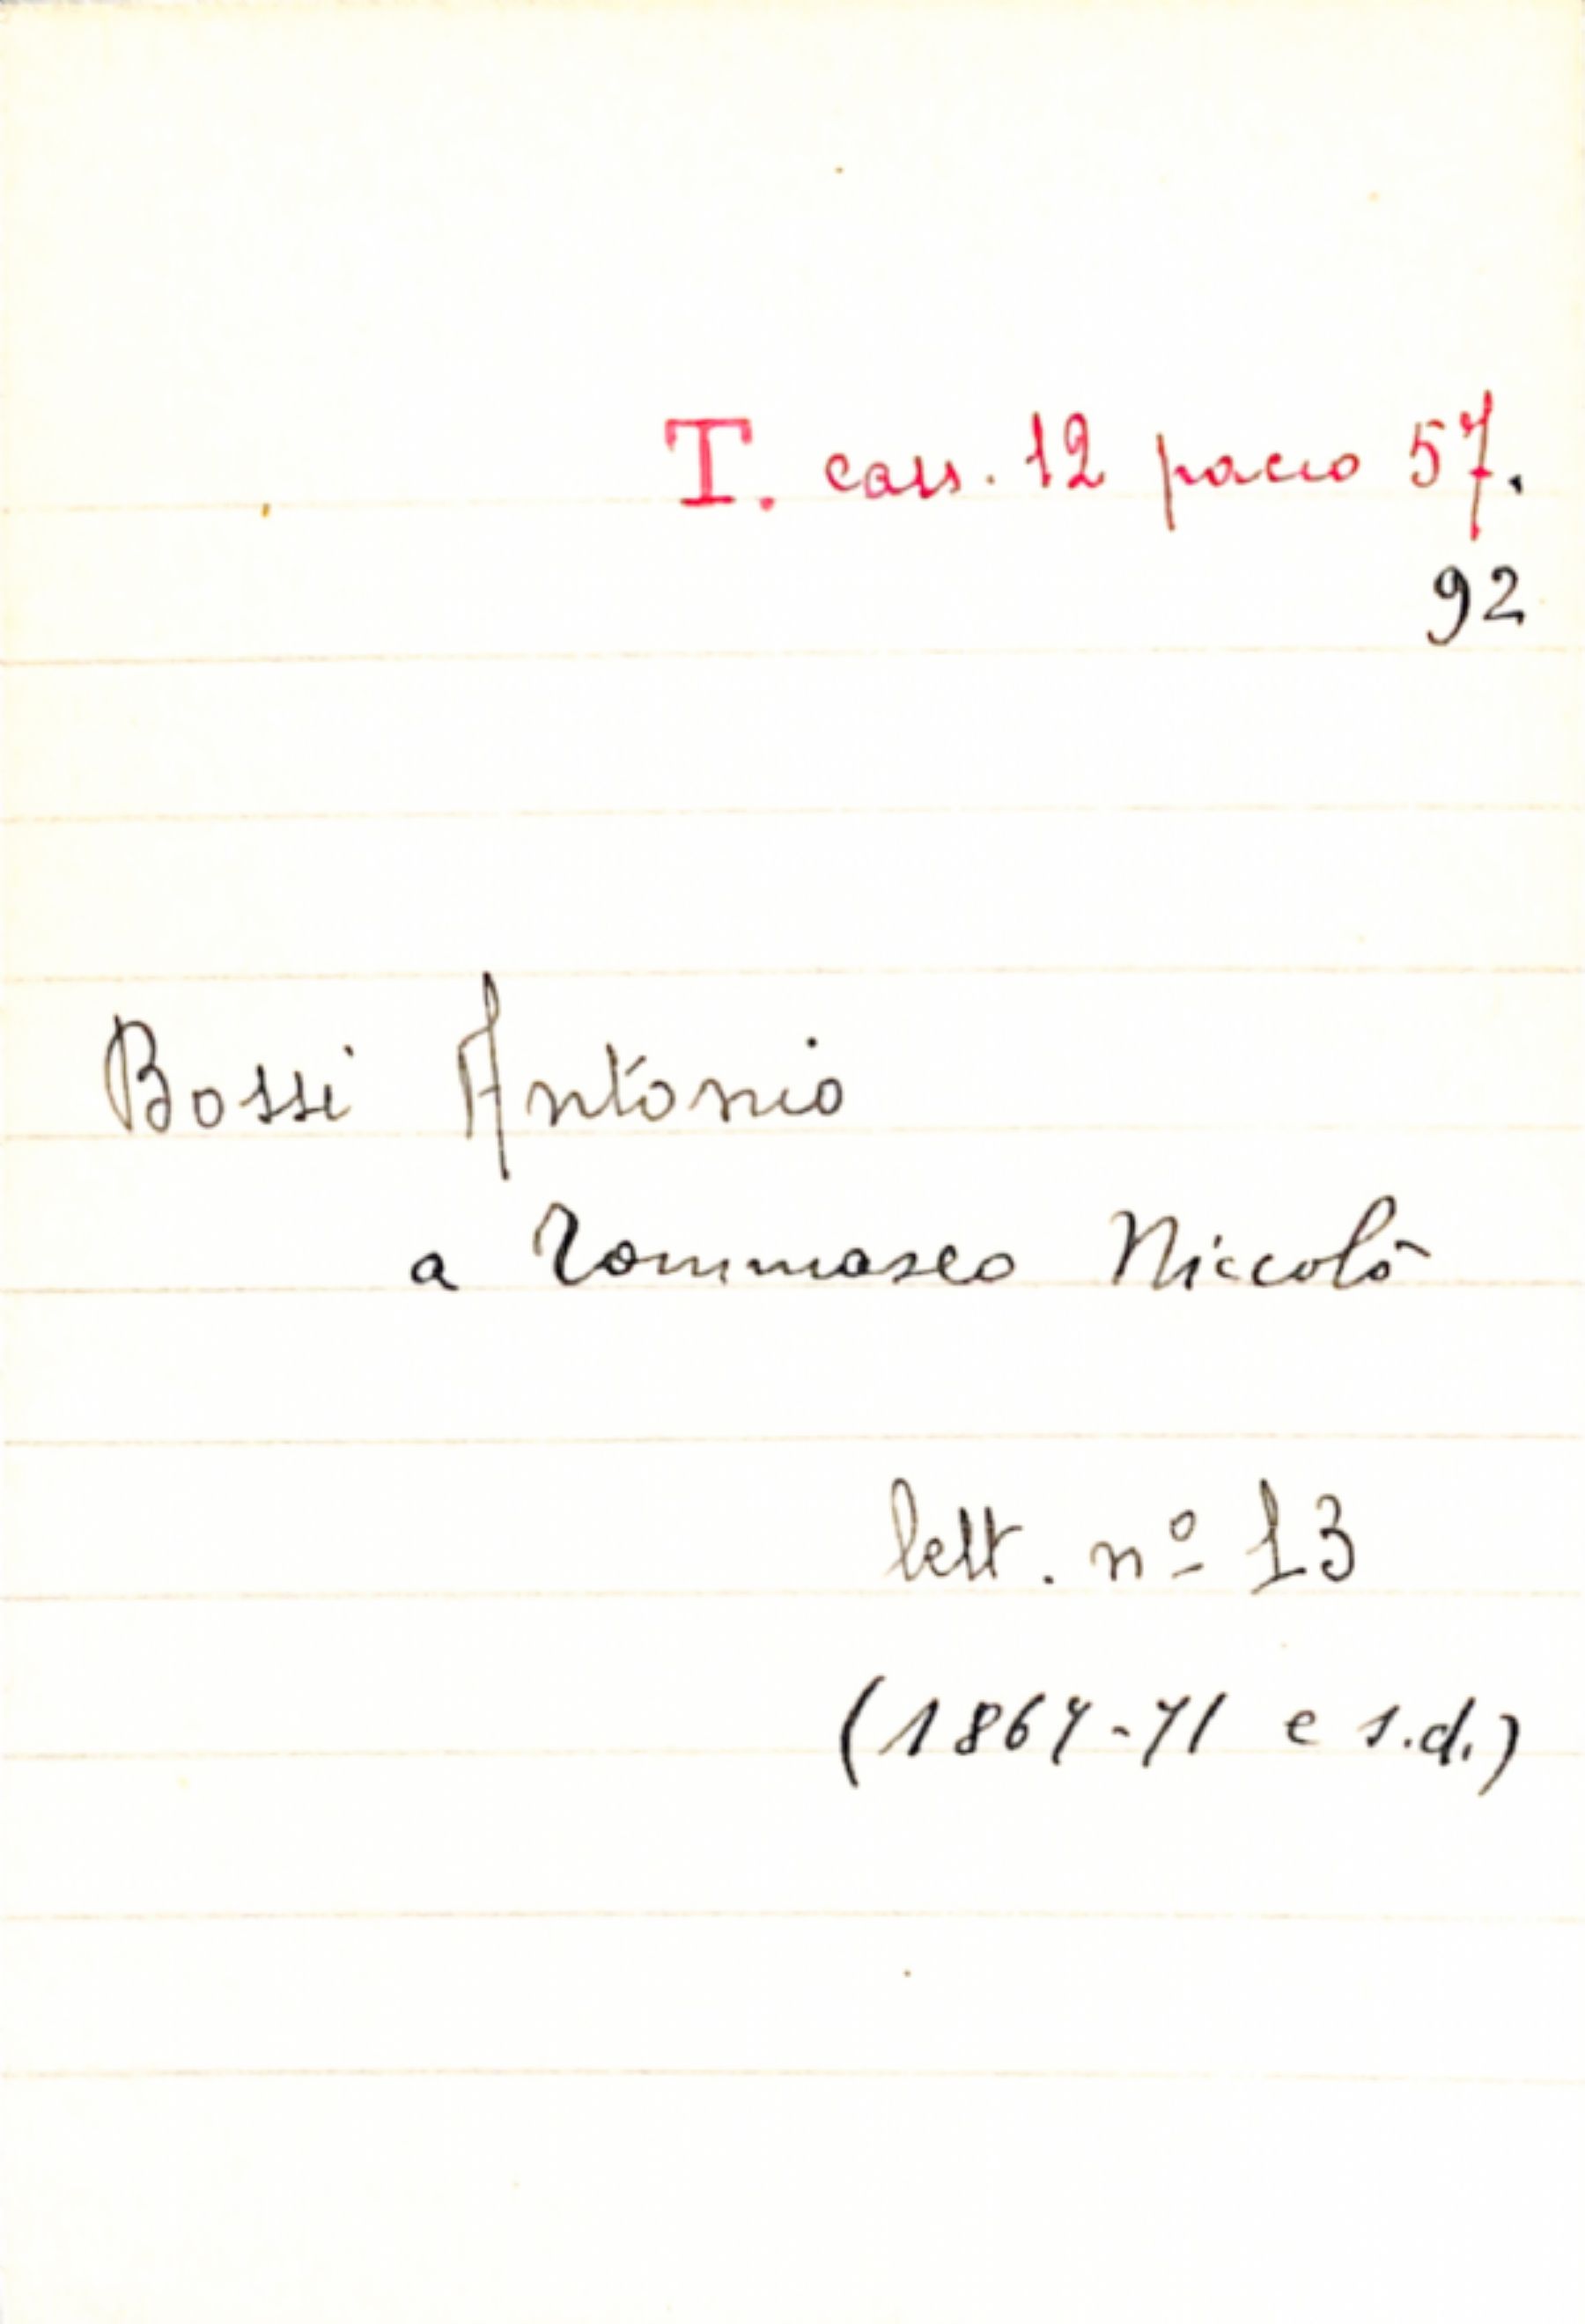 T. cass. 12 pacco 57.
92
Bossi Antonio
a Tommaseo Niccolò
lett. nº 13
(1867-71 e s.d.)